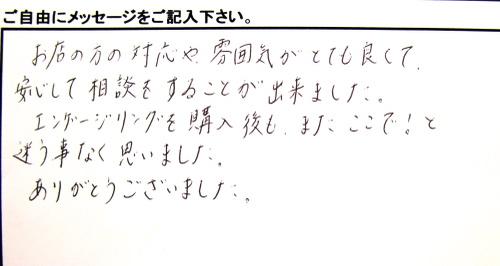 ご自由にメッセージをご記入下さい。
お店の方の対応や雰囲気がとても良くて、
安心して相談をすることが出来ました。
エンゲージリングを購入後も、またここで！と
迷う事なく思いました。
ありがとうございました。